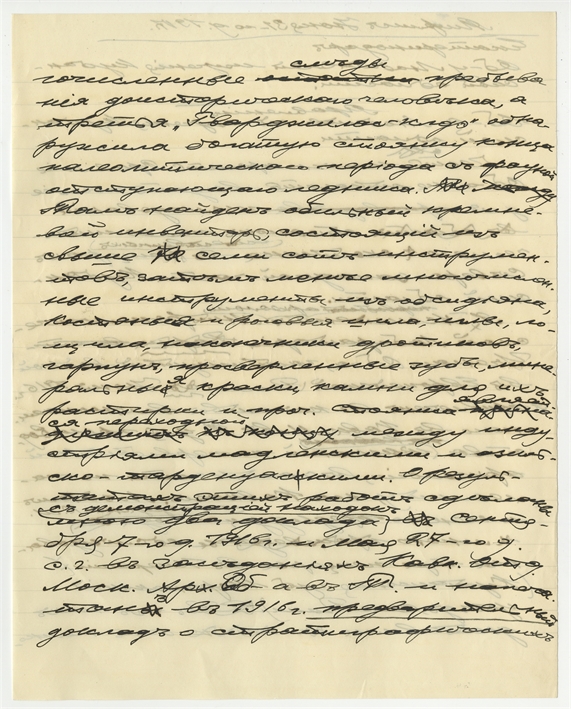 следы
точисленные пребыва
нія доисторическаго человѣка, а
третья „Гварджилас-клдэ" обна
ружила богатую стоянку конца
палеолитическаго періода съ фауной
отступающаго ледника.
Тамъ найденъ обильный кремне-
вой инвентарь, состоящій изъ
свыше семи сотъ инструмен-
товъ, затѣмъ менѣе многочислен-
ные инструменты изъ обсидіана,
костяныя и роговыя шила, иглы, ло-
щила, наконечники дротиковъ,
гарпунъ, просверленные зубы, мине-
ральныя краски камни для ихъ
растирки и проч. Стоянка являет
ся переходной между инду-
стріями мадленскими и азиль-
ско-тарденуаскими. О резуль-
татахъ этихъ работъ сдѣлано
съ демонстраціей находокъ
мною два доклада Сентя-
бря 7-го д. 1916 г. и Мая 27-го д.
с. г. въ Засѣданіяхъ Кавк. Отд.
Моск. Арх. Об-а въ Т. и напеча
танъ въ 1916 г. предварительный
докладъ о стратиграфическихъ